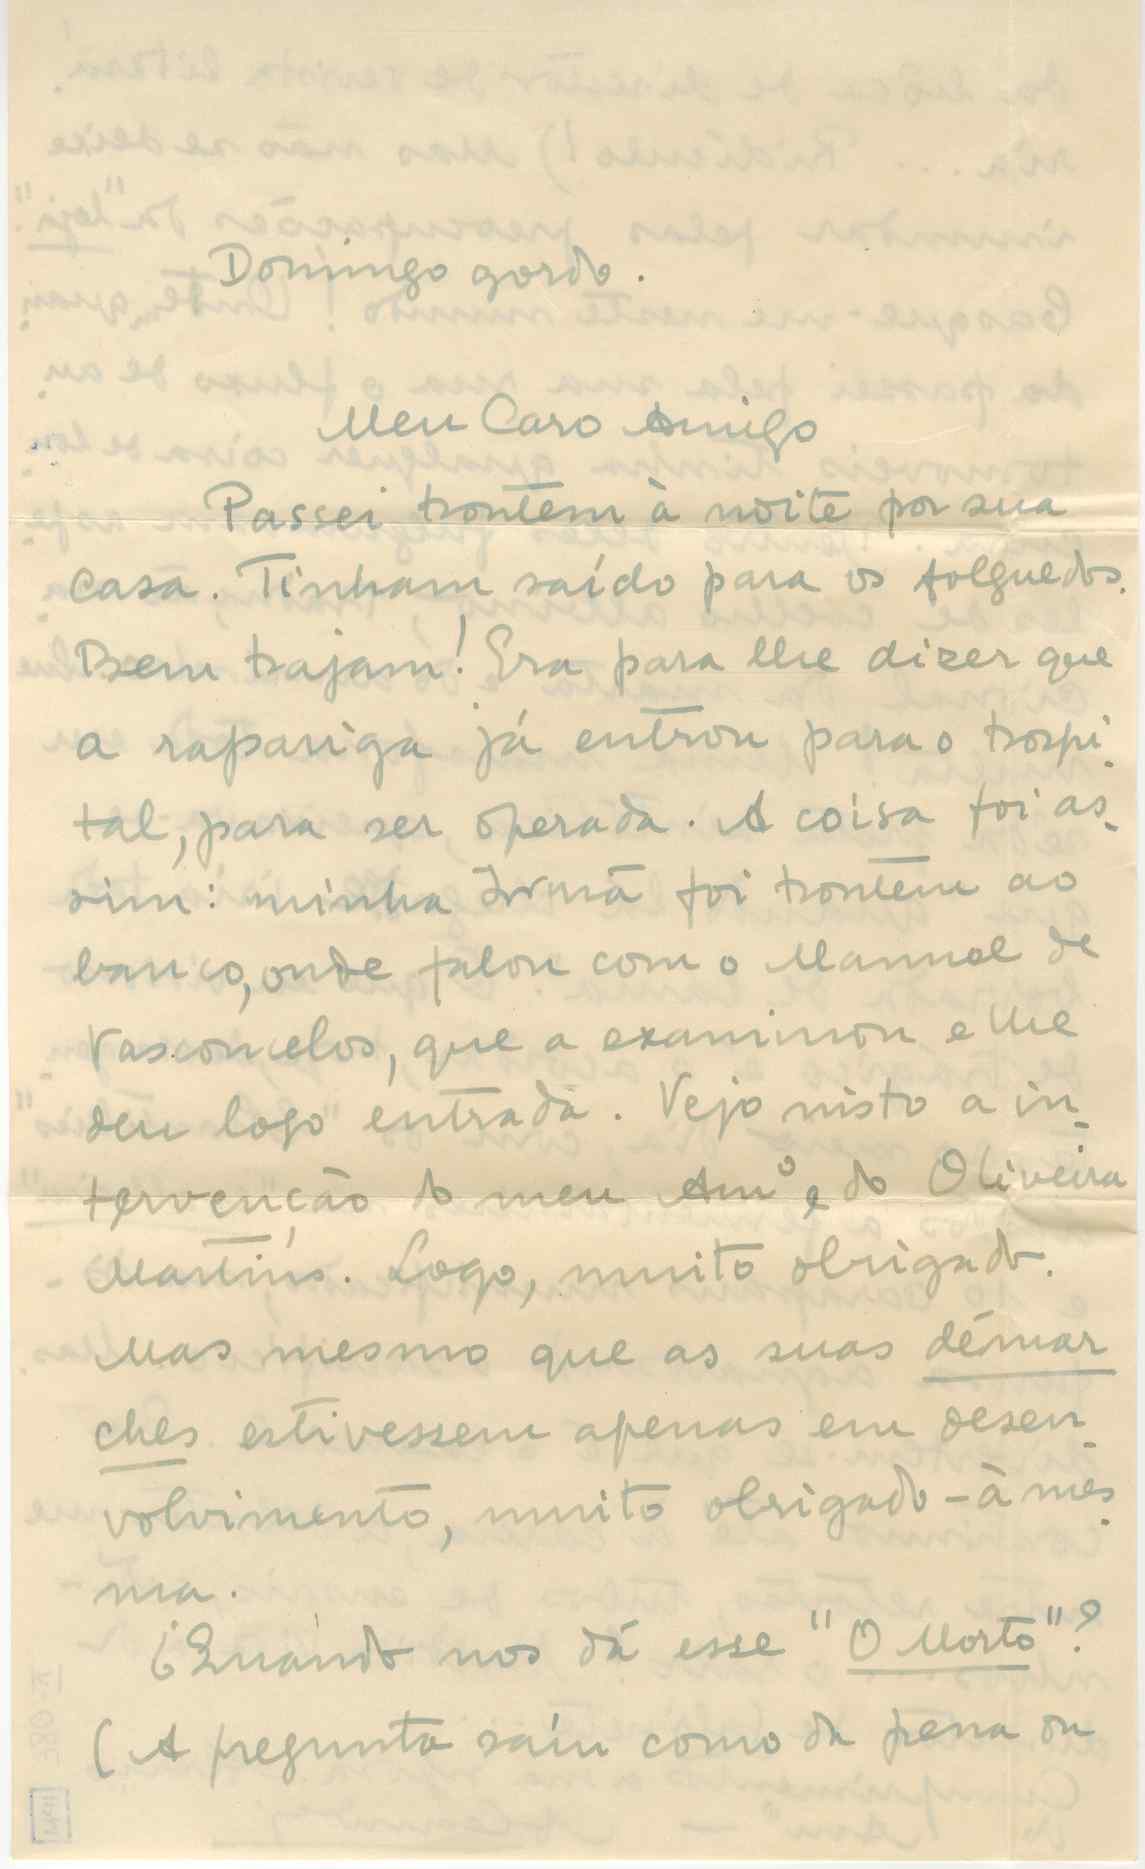 Domingo gordo.
Meu Caro Amigo
Passei hontem à noite por sua
casa. Tinham saído para os folguedos.
Bem hajam! Era para lhe dizer que
a rapariga já entrou para o hospi-
tal, para ser operada. A coisa foi as-
sim: minha Irmã foi hontem ao
banco, onde falou com o Manuel de
Vasconcelos, que a examinou e lhe
deu logo entrada. Vejo nisto a in-
tervenção do meu Amº e do Oliveira
Martins. Logo, muito obrigado.
Mas mesmo que as suas démar
ches estivessem apenas em desen-
volvimento, muito obrigado - à mes-
ma.
¿Quando nos dá esse "O Morto"?
(A pregunta saíu como da pena ou